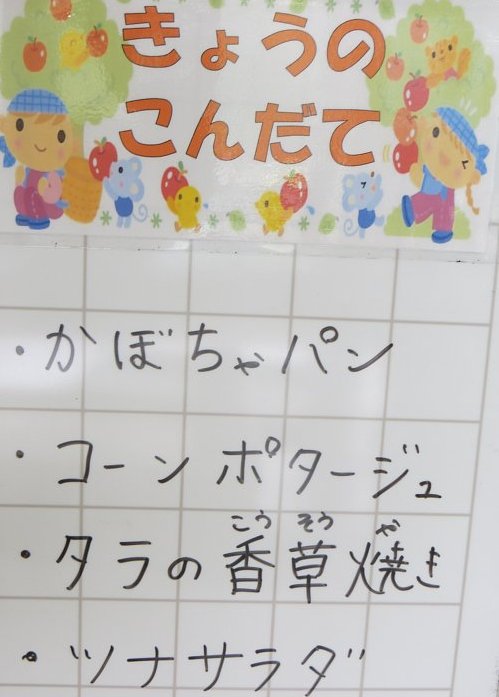 きょうの
こんだて
・かぼちゃパン
・コーンポタージュ
こうそうや
・タラの香草焼き
・ツナサラダ